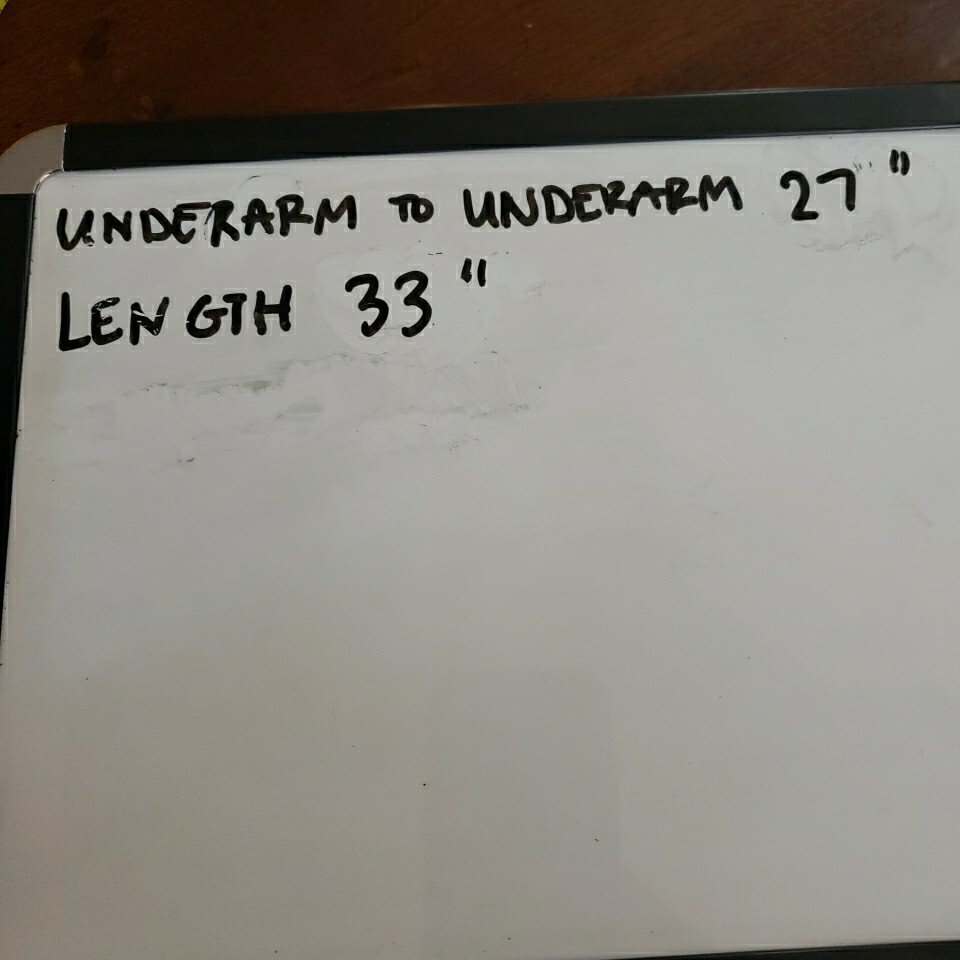 UNDERARM TO UNDERARM 27"
LENGTH 33"